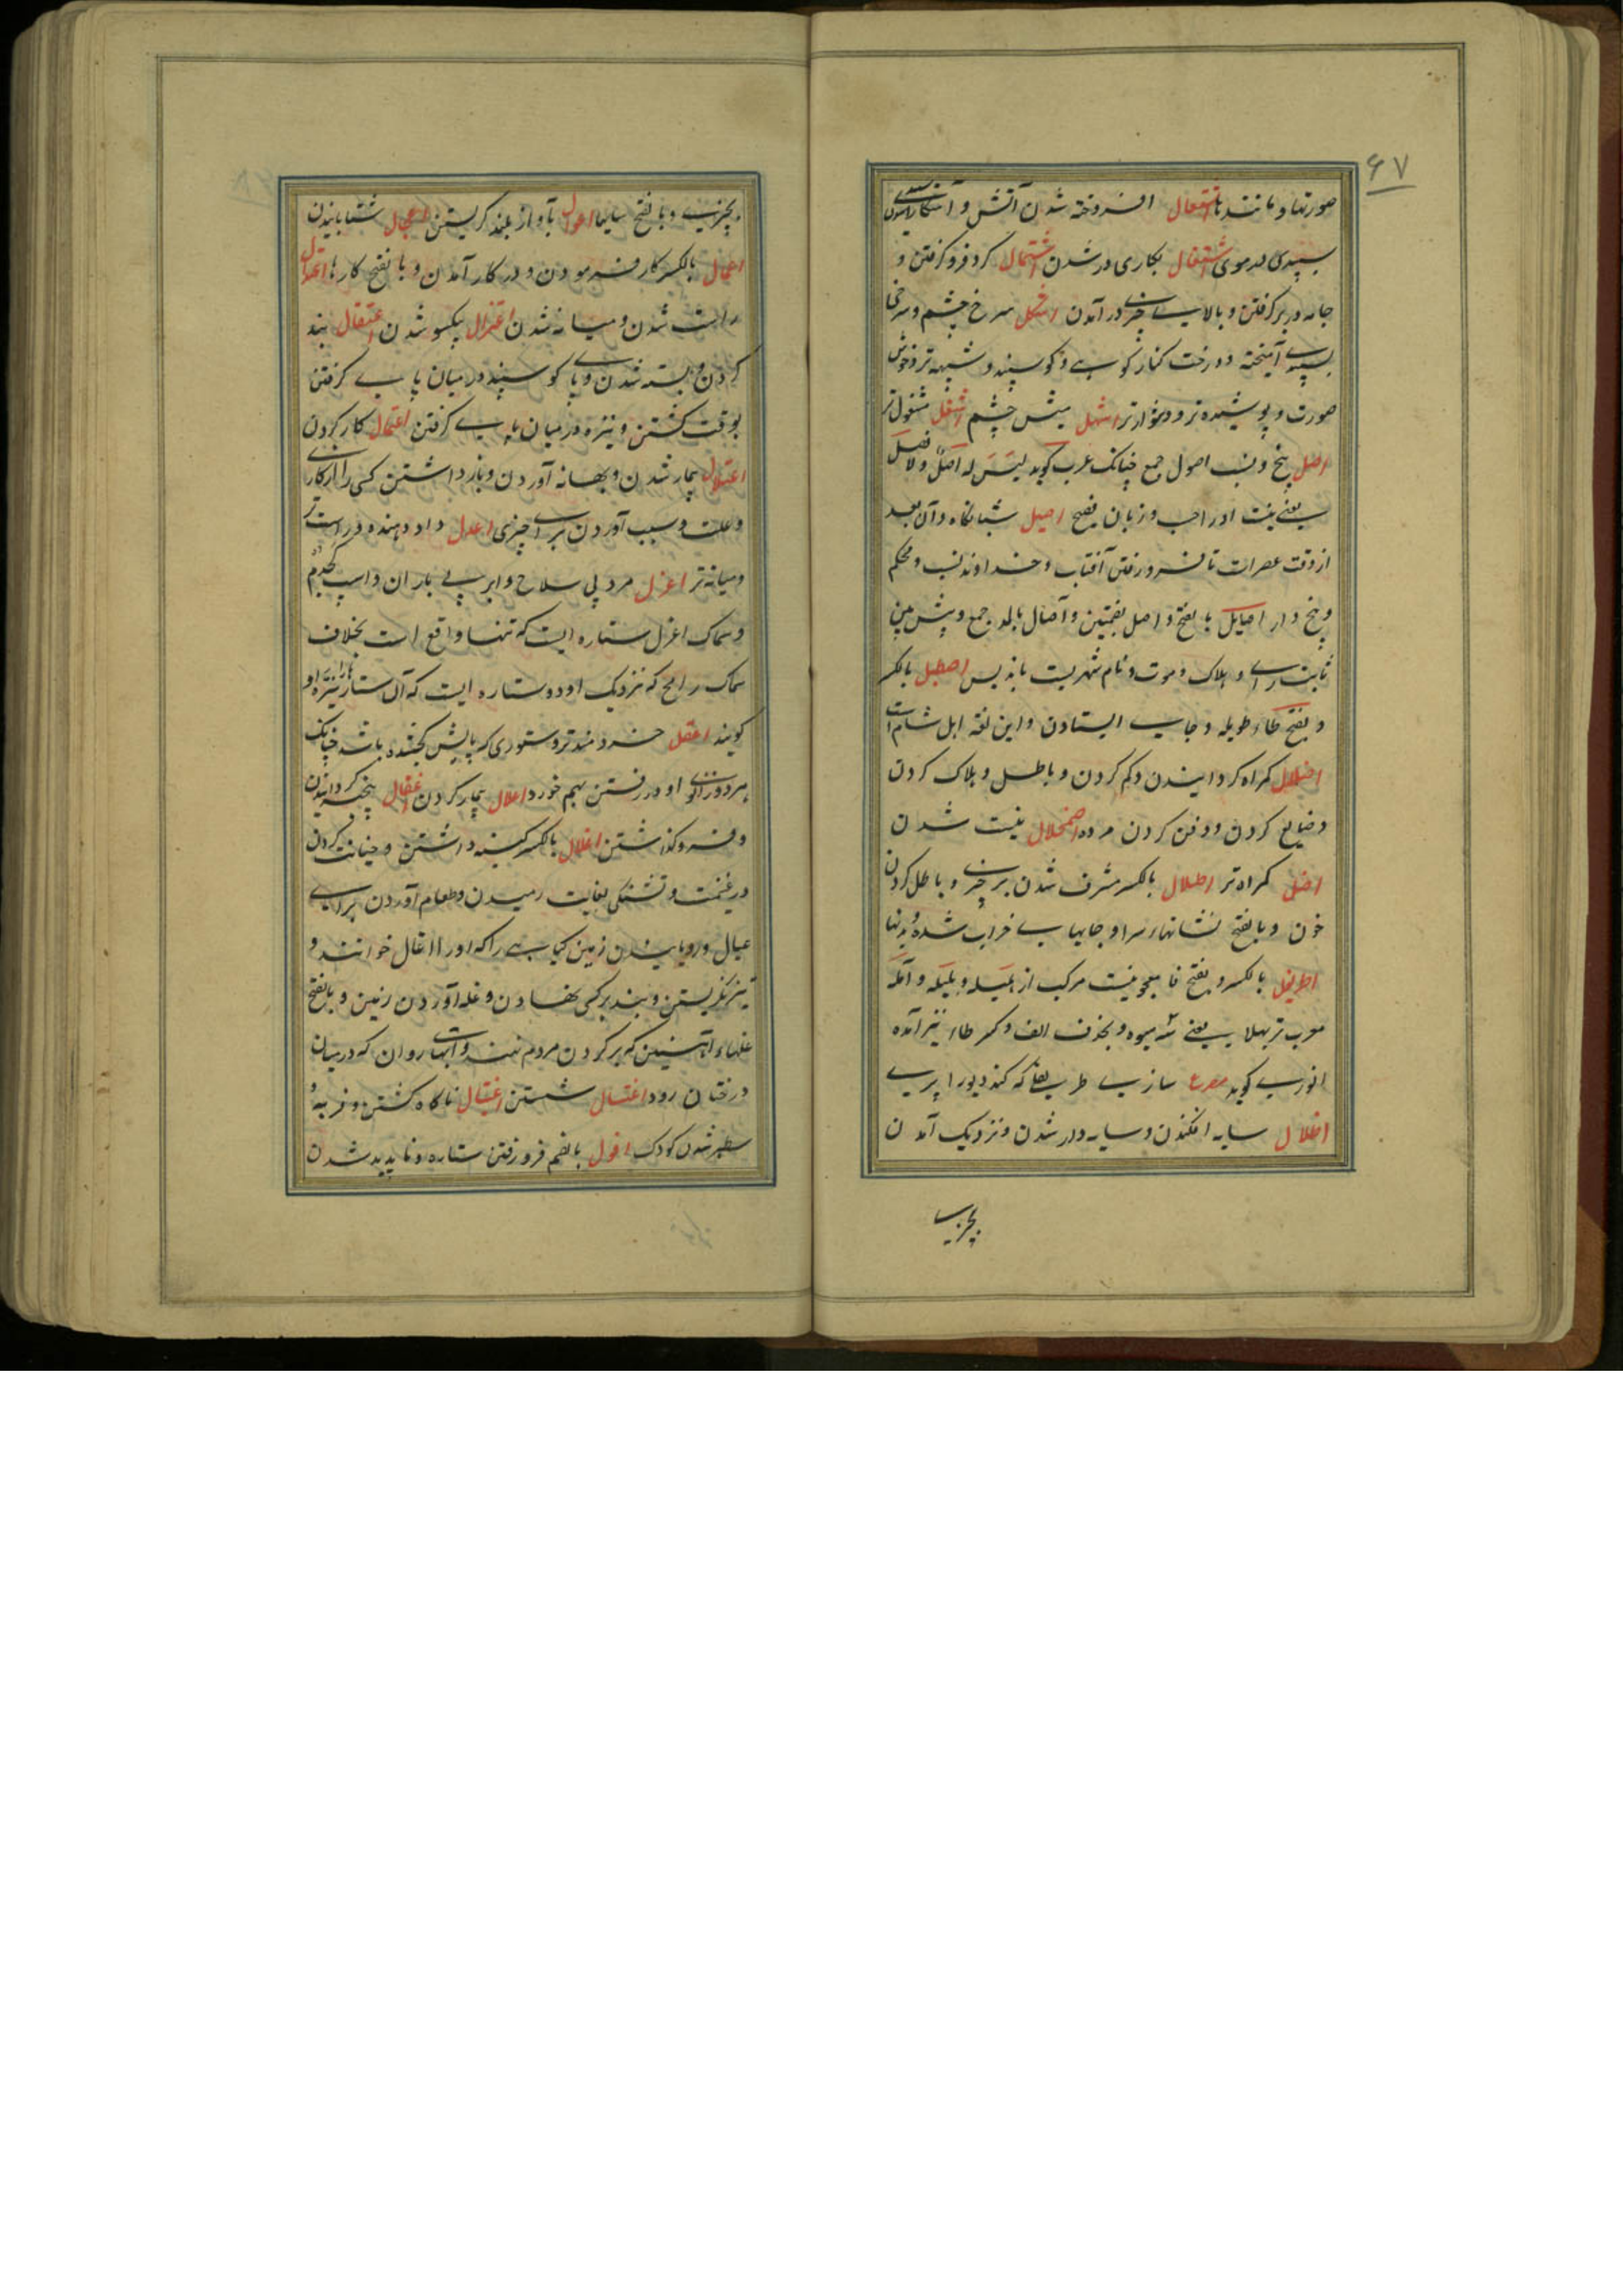 ۶۷
صورتها و مانندها اشتعال افروخته شدن آتش و آشکارا شدن
سپیدی در موی اشتغال بکاری در شدن اشتمال گرد فرو گرفتن و
جامه در بر گرفتن و بالای چیزی در آمدن اشکل سرخ چشم و سرخی
بسپیدی آمیخته و درخت کنار کوهی و گوسپند و شبیه تر و خوش
صورت و پوشیده تر و دشوارتر اشهل میش چشم اشغل مشغول تر
اصل بیخ و نسب اصول جمع چنانک عرب گوید لیس له اصل ولا فصل
یعنی نیست او را حسب و زبان فصیح اصیل شبانگاه و آن بعد
از وقت عصر است تا فرو رفتن آفتاب و خداوند نسب و محکم
و بیخ دار اصایل بالفتح و اصل بضمتین و آصال بالمد جمع و پیش بین
ثابت رای و هلاک و موت و نام شهریست باندلس اصطبل بالکسر
و بفتح طاء طویله و جای ایستادن و این لغة اهل شام است
اضلال گمراه گردانیدن و گم کردن و باطل و هلاک کردن
و ضایع کردن و دفن کردن مرده اضمحلال نیست شدن
اضل گمراه تر اطلال بالکسر مشرف شدن بر چیزی و باطل کردن
خون و بالفتح نشانهاء سرا و جایهای خراب شده و بدنها
اطریفل بالکسر و بفتح فا معجونیست مرکب از هلیله و بلیله و آمله
معرب تریهلا یعنی سه میوه و بحذف الف و کسر طاء نیز آمده
انوری گوید مصرع سازی طریفلی که کند دیو را پری
اظلال سایه افکندن و سایه ور شدن و نزدیک آمدن
بچیزی
بچیزی و بالفتح سایها اعوال بآواز بلند گریستن اعجال شتابانیدن
اعمال بالکسر کار فرمودن و در کار آمدن و بالفتح کارها اعتدال
راست شدن و میانه شدن اعتزال یکسو شدن اعتقال بند
کردن و بسته شدن و پای گوسپند در میان پای گرفتن
بوقت کشتن و نیزه در میان پای گرفتن اعتمال کار کردن
اعتلال بیمار شدن و بهانه آوردن و باز داشتن کسی را از کاری
و علت و سبب آوردن برای چیزی اعدل داد دهنده و راست تر
و میانه تر اعزل مرد بی سلاح و ابر بی باران و اسپ کجدم
و سماک اعزل ستاره ایست که تنها واقع است بخلاف
سماک رامح که نزدیک او دو ستاره ایست که آن ستارها را نیزه او
گویند اعقل خردمندتر و ستوری که پایش کجشده باشد چنانک
هر دو زانوی او در رفتن بهم خورد اعلال بیمار کردن اغفال بیخبر گردانیدن
و فرو گذاشتن اغلال بالکسر کینه داشتن و خیانت کردن
در غنیمت و تشنگی بغایت رسیدن و طعام آوردن برای
عیال و رویانیدن زمین گیاهی را که او را اغلال خوانند و
تیز نگریستن و بند بر کسی نهادن و غله آوردن زمین و بالفتح
غلهاء آهنین که بر گردن مردم نهند و آبهای روان که در میان
درختان رود اغتسال شستن اغتیال ناگاه کشتن و فربه و
سطبر شدن کودک افول بالضم فرو رفتن ستاره و ناپدید شدن